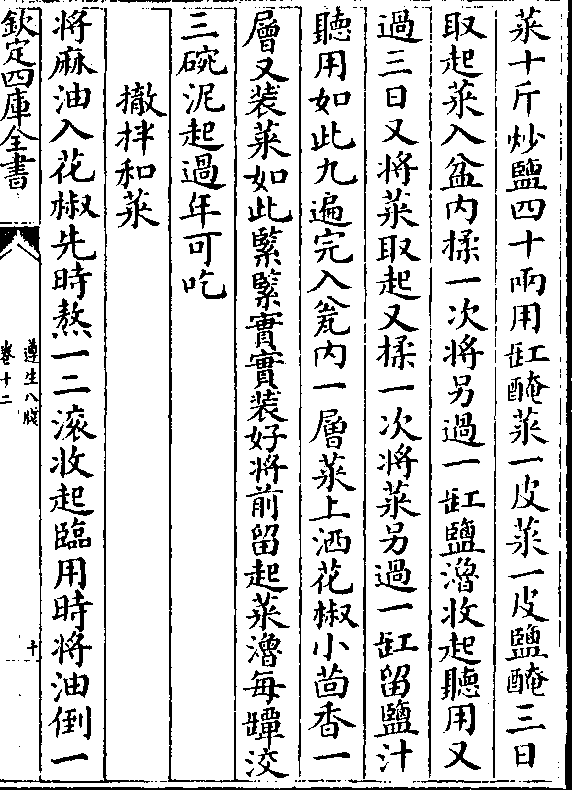 菜十斤炒鹽四十兩用缸醃菜一皮菜一皮鹽醃三日
取起菜入盆内揉一次將另過一缸鹽滷收起聽用又
過三日又將菜取起又揉一次將菜另過一缸留鹽汁
聽用如此九遍完入瓮内一層菜上洒花椒小茴香一
層又装菜如此緊緊實實装好將前留起菜滷每罈澆
三碗泥起過年可吃
撒拌和菜
將麻油入花椒先時熬一二滚收起臨用時將油倒一
欽定四庫全書
遵生八牋
卷十二
十